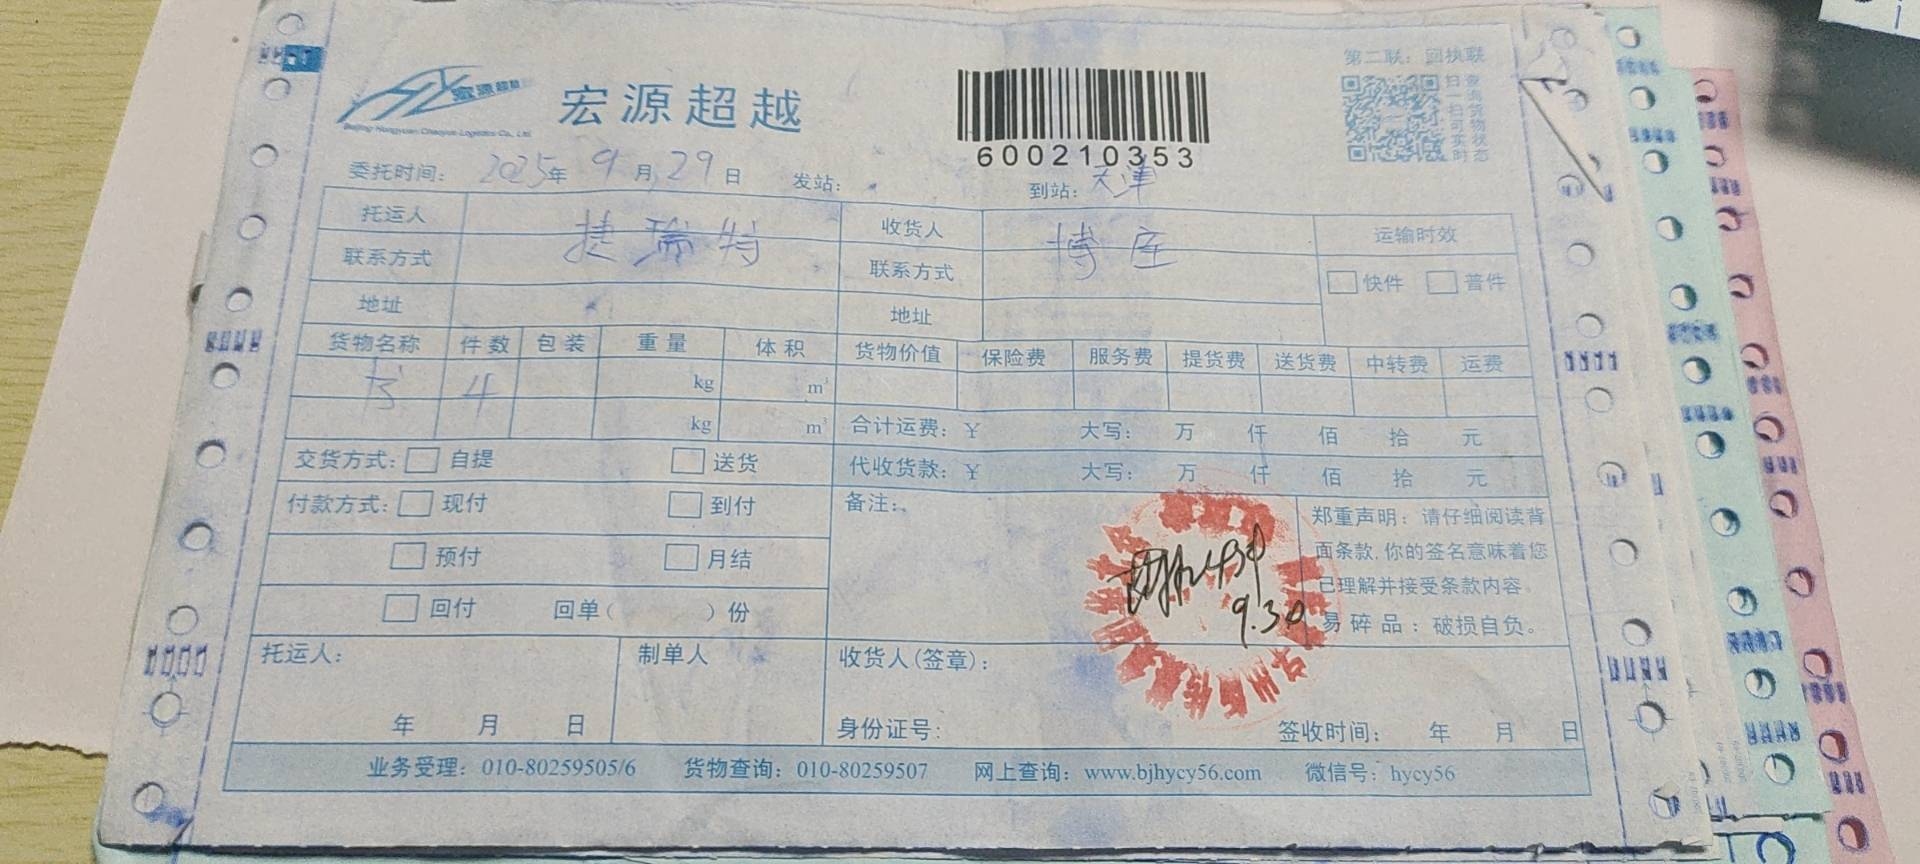 第二联：回执联
宏源超越
宏源超越
Beijing Hongyuan Chaoyue Logistics Co., Ltd
扫一扫可实时
查询货物状态
600210353
委托时间： 2025年 9月 29日 发站： 到站：天津
托运人 捷瑞特 收货人 博库 运输时效
联系方式 联系方式 快件 普件
地址 地址
货物名称 件数 包装 重量 体积 货物价值 保险费 服务费 提货费 送货费 中转费 运费
书 4 kg m³
kg m³ 合计运费：¥ 大写： 万 仟 佰 拾 元
交货方式： 自提 送货 代收货款：¥ 大写： 万 仟 佰 拾 元
付款方式： 现付 到付 备注：
预付 月结
回付 回单（ ）份
9.30
郑重声明：请仔细阅读背
面条款,你的签名意味着您
已理解并接受条款内容。
易碎品：破损自负。
托运人： 制单人 收货人(签章)：
年 月 日 身份证号： 签收时间： 年 月 日
业务受理：010-80259505/6 货物查询：010-80259507 网上查询：www.bjhycy56.com 微信号：hycy56